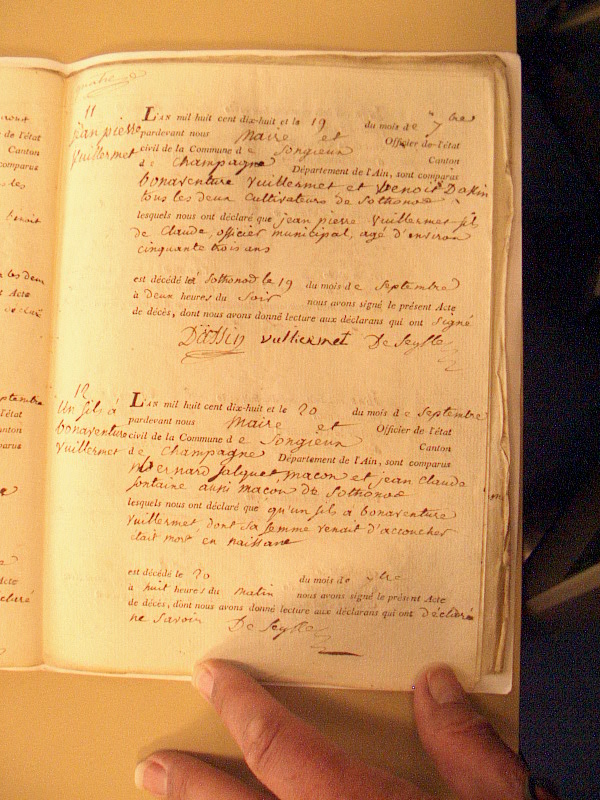 11
jean pierre
vuillermet
L'AN mil huit cent dix-huit et le 19 du mois de 7bre
pardevant nous maire et Officier de-l'état
civil de la Commune de Songieux Canton
de Champagne Département de l'Ain, sont comparus
bonaventure vuillermet et benoit Dassin
tous les deux cultivateurs de Sothonod
lesquels nous ont déclaré que jean pierre vuillermet fil
de Claude, officier municipal, agé d'environ
cinquante trois ans
est décédé à Sothonod le 19 du mois de Septembre
à deux heures du Soir nous avons signé le présent Acte
de décès, dont nous avons donné lecture aux déclarans qui ont signé
Dassin vuillermet De Seyssel
12
Un fils à
bonaventure
vuillermet
L'AN mil huit cent dix-huit et le 20 du mois de Septembre
pardevant nous maire et Officier de l'état
civil de la Commune de Songieux Canton
de Champagne Département de l'Ain, sont comparus
Bernard jalquet macon et jean Claude
fontaine aussi macon de Sothonod
lesquels nous ont déclaré que qu'un fils à bonaventure
vuillermet, dont sa femme venait d'accoucher
était mort en naissant
est décédé le 20 du mois de
à huit heures du matin nous avons signé le présent Acte
de décès, dont nous avons donné lecture aux déclarans qui ont déclaré
ne savoir De Seyssel